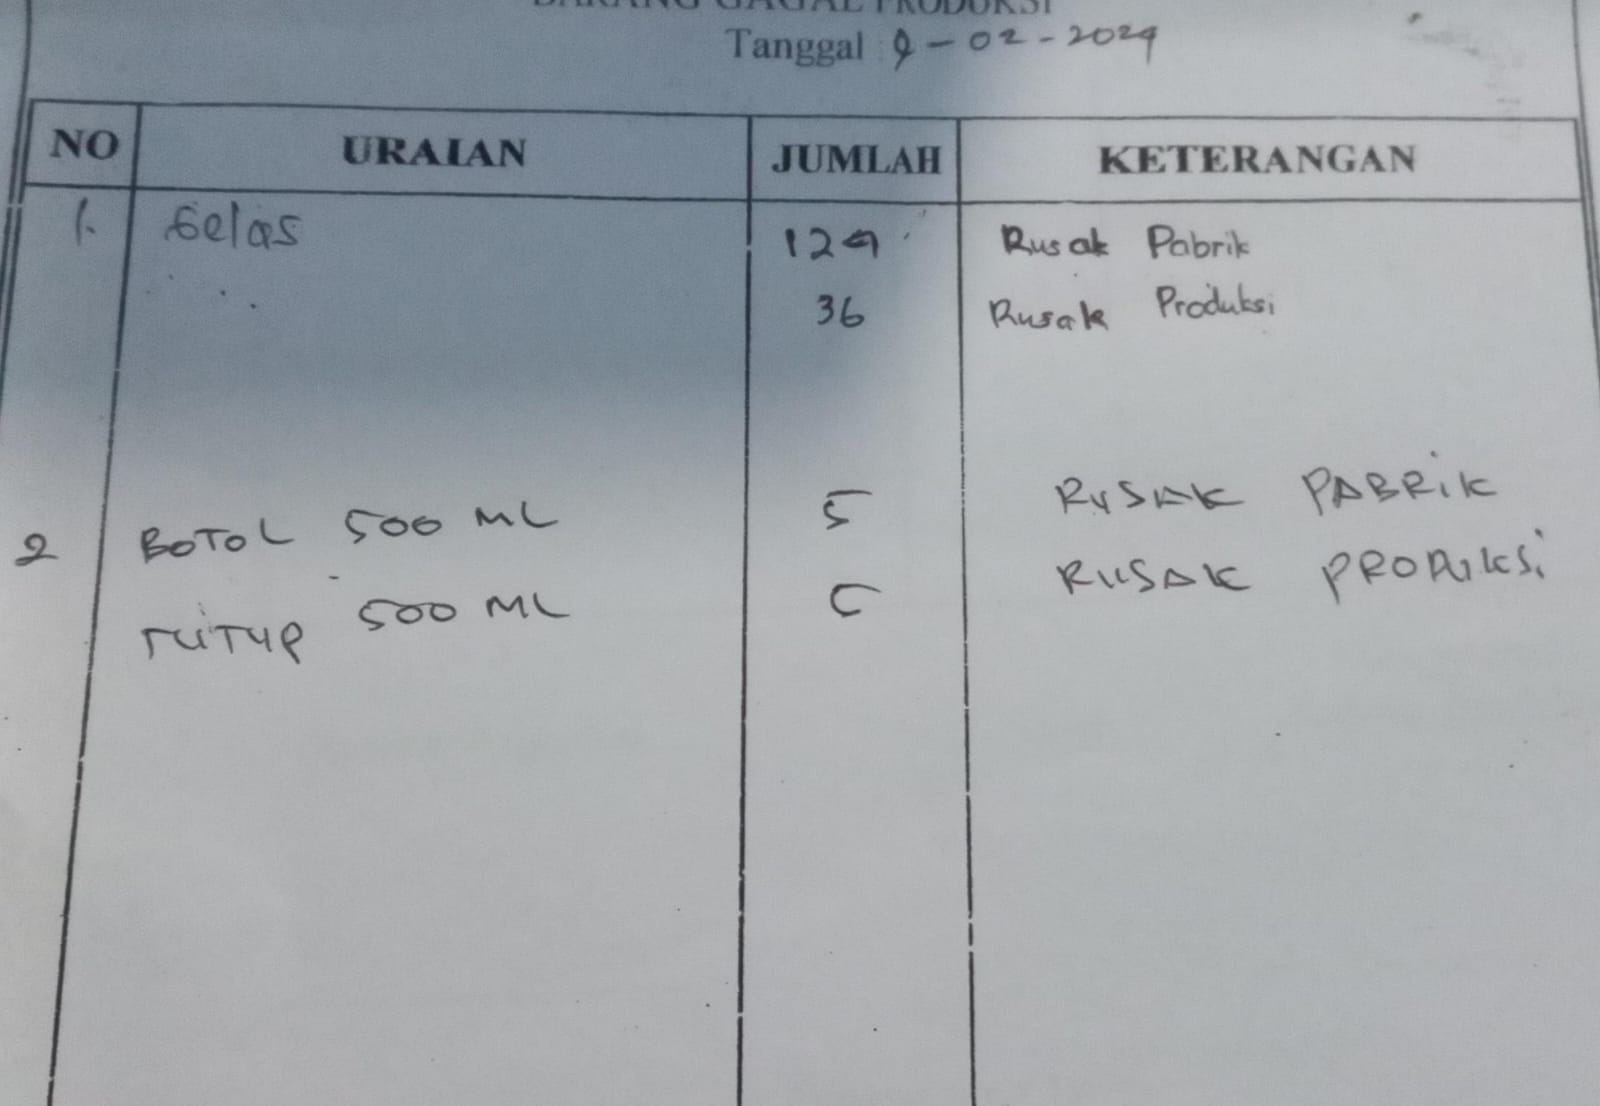 BARANG GAGAL PRODUKSI
Tanggal : 9-02-2024
NO URAIAN JUMLAH KETERANGAN
1. Gelas 129 Rusak Pabrik
36 Rusak Produksi
2 BOTOL 500 ML 5 RUSAK PABRIK
TUTUP 500 ML 5 RUSAK PRODUKSI